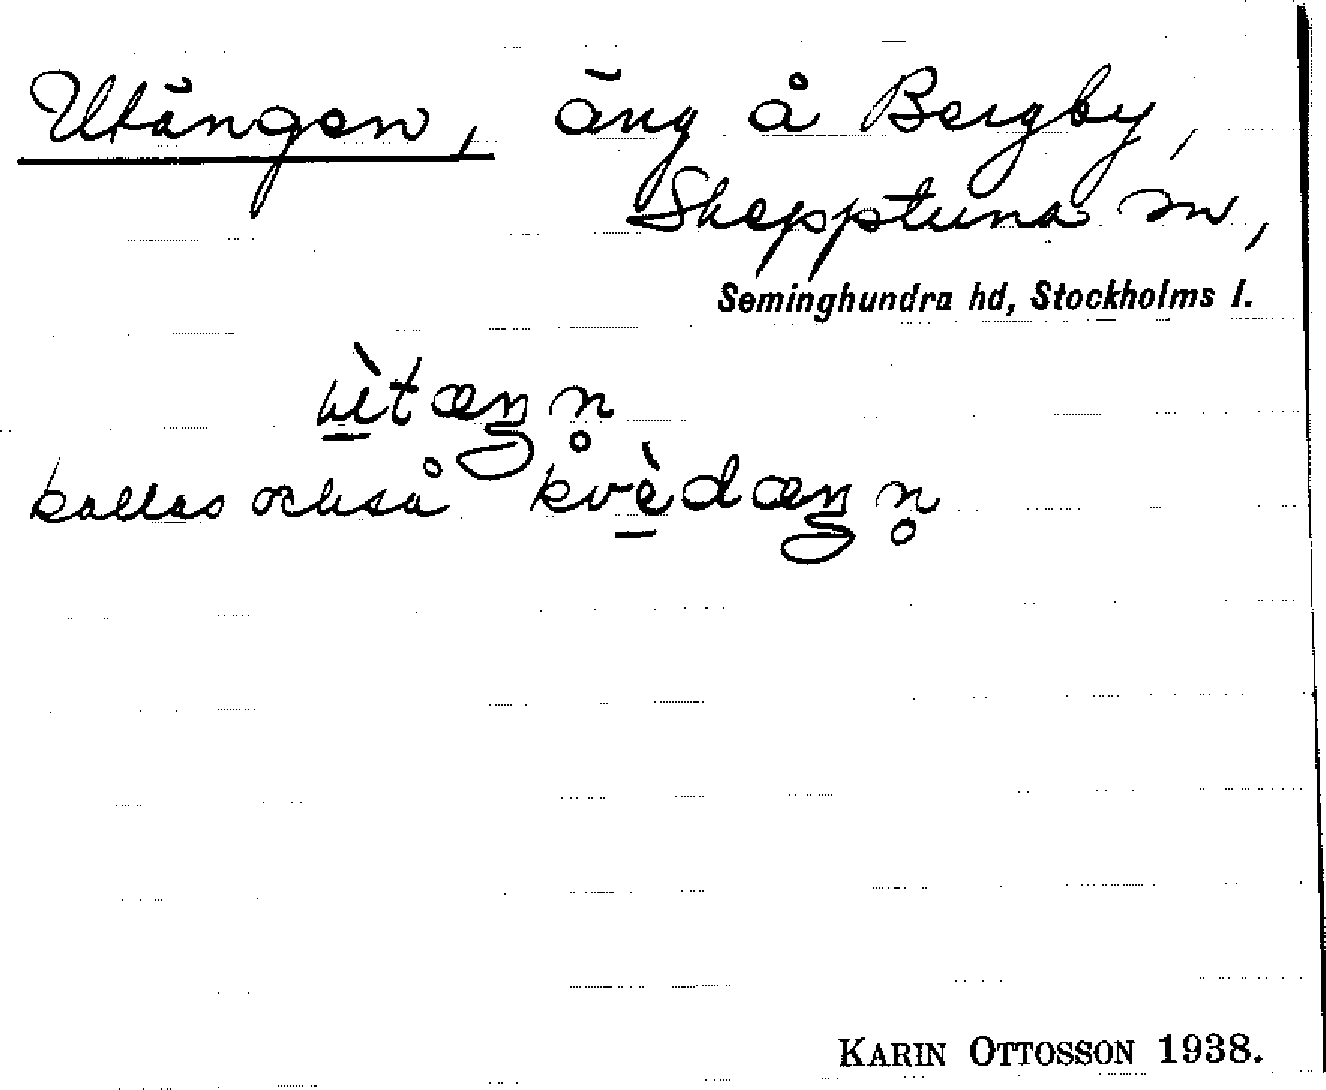 Utängen, äng å Bergby,
Skepptuna sn,
Seminghundra hd, Stockholms l.
kallas också kvè̱dæŋn̥
KARIN OTTOSSON 1938.